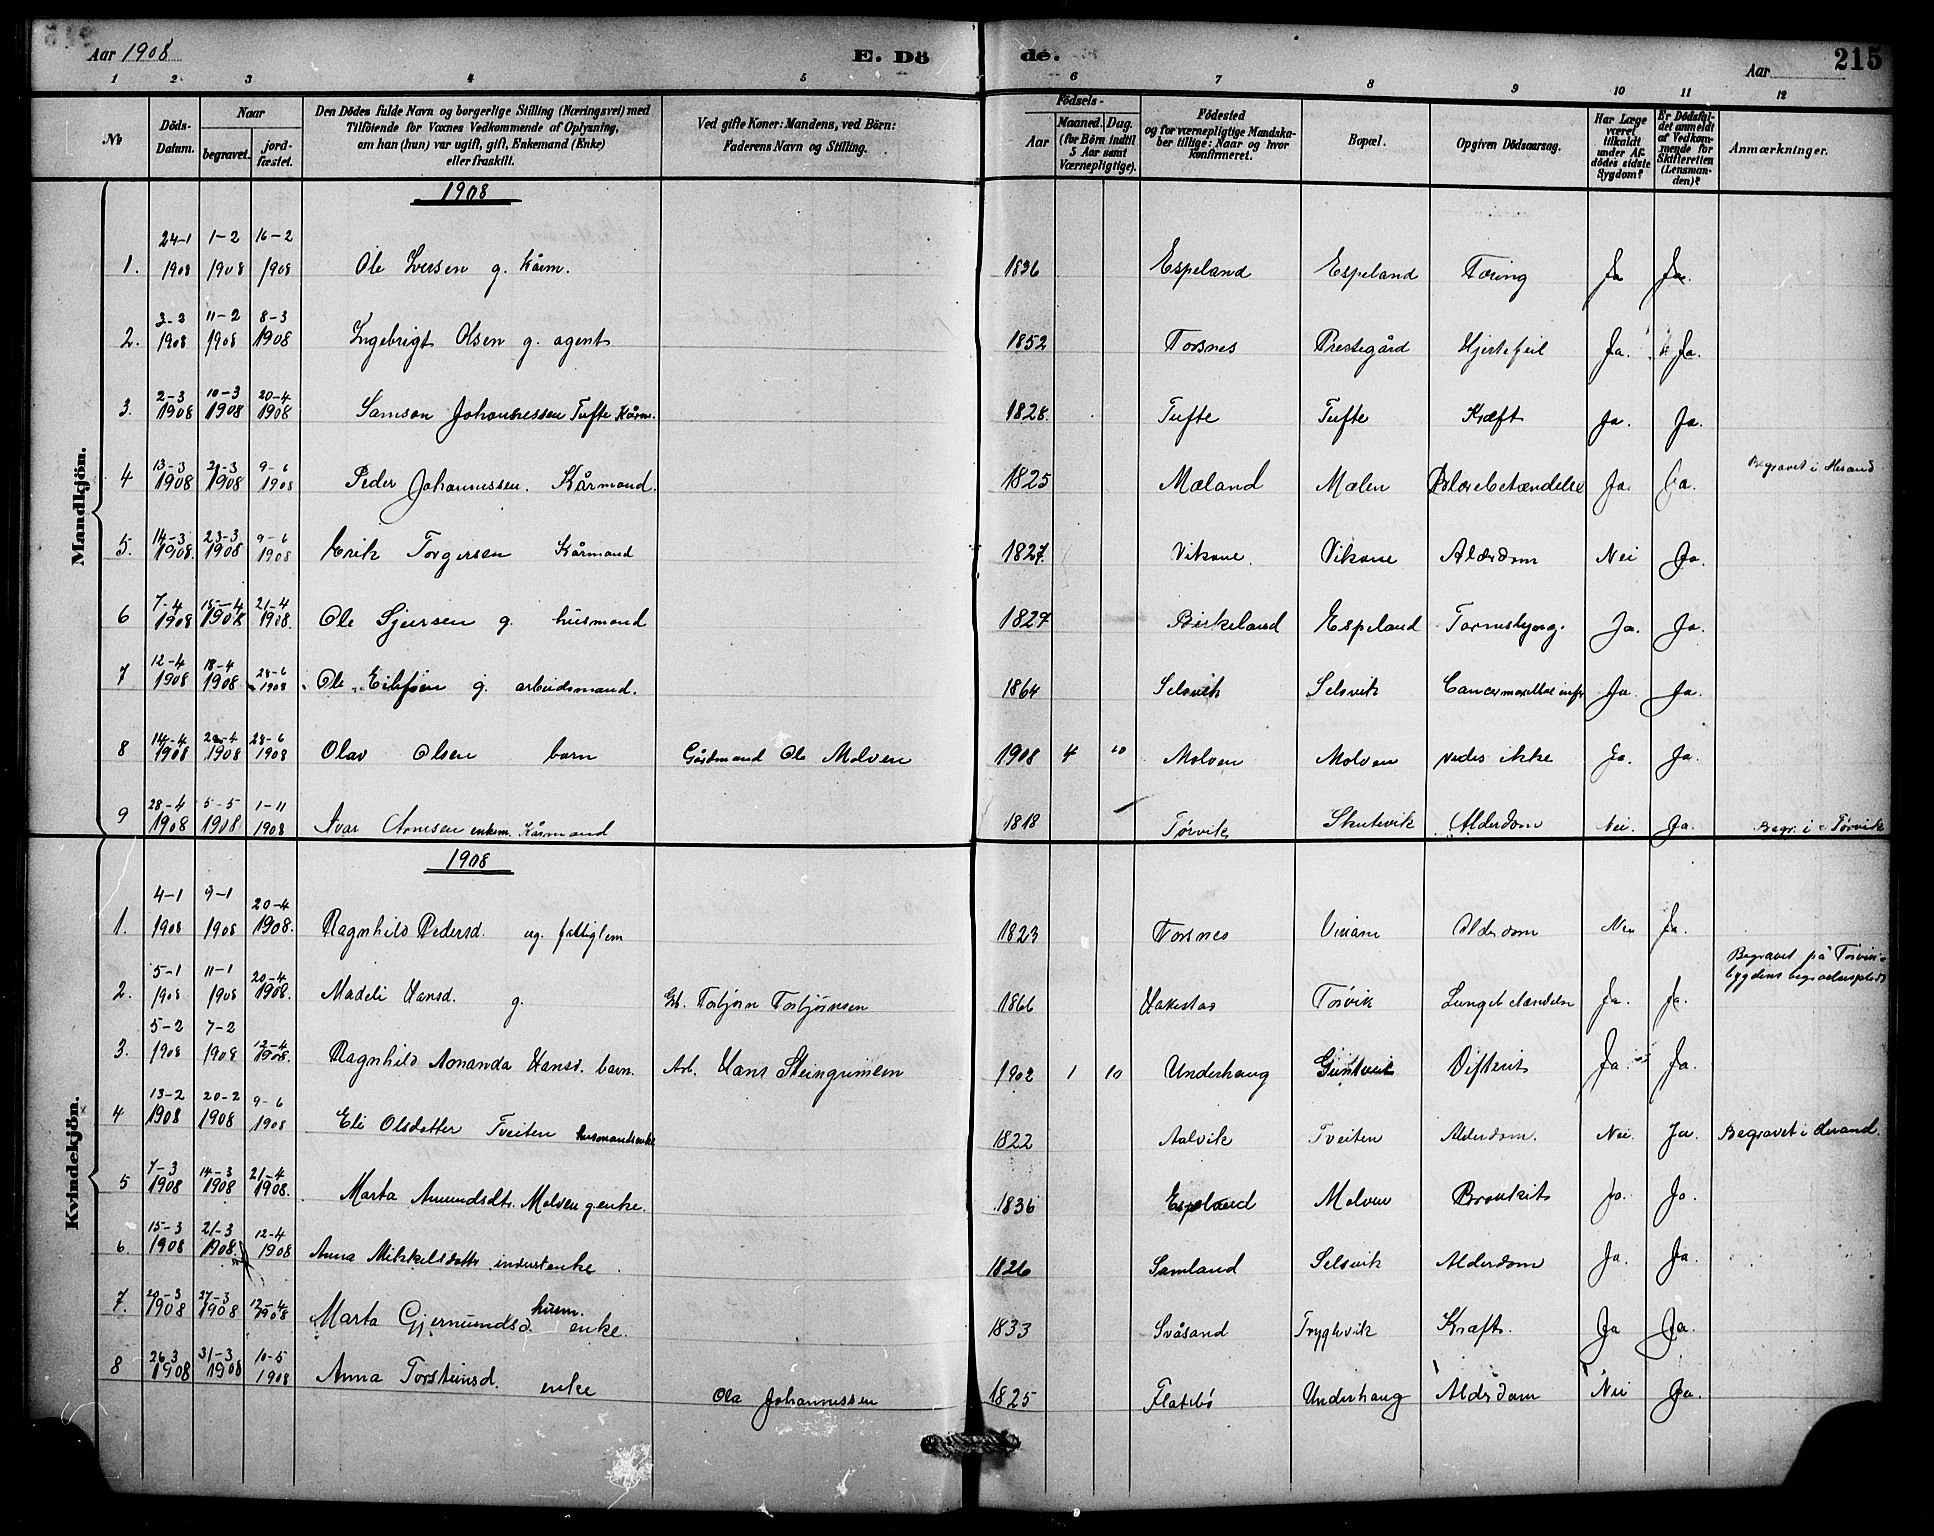 Aar 1908 E. Dö de. Aar 215
1 2 3 4 5 6 7 8 9 10 11 12
№ Döds-Datum. Naar begravet. jord-fæstet. Den Dödes fulde Navn og borgerlige Stilling (Næringsvei) med Tilföiende for Voxnes Vedkommende af Oplysning, om han (hun) var ugift, gift, Enkemand (Enke) eller fraskilt. Ved gifte Koner: Mandens, ved Börn: Faderens Navn og Stilling. Födsels- Aar Maaned. Dag. (for Börn indtil 5 Aar samt Værnepligtige). Födested og for værnepligtige Mandska-ber tillige: Naar og hvor konfirmeret. Bopæl. Opgiven Dödsaarsag. Har Læge været tilkaldt under Af-dödes sidste Sygdom? Er Dödsfal-det anmeldt af Vedkom-mende for Skifteretten (Lensman-den)? Anmærkninger.
Mandkjön.
1908
1. 24-1 1908 1-2 1908 16-2 1908 Ole Iversen g. kårm. 1836 Espeland Espeland Tæring Ja Ja.
2. 3-2 1908 11-2 1908 8-3 1908 Ingebrigt Olsen g. agent 1852 Torsnes Prestegård Hjertefeil Ja. Ja.
3. 2-3 1908 10-3 1908 20-4 1908 Samson Johannessen Tufte Kårm. 1828. Tufte Tufte Kræft Ja. Ja.
4 13-3 1908 21-3 1908 9-6 1908 Peder Johannessen. Kårmand. 1825 Mæland Mælen Blærebetændelse Ja. Ja. Begravet i Herand
5. 14-3 1908. 23-3 1908 9-6 1908 Erik Torgersen Kårmand 1827. Vikane. Vikane Alderdom Nei Ja.
6 7-4 1908 15-4 1908 21-4 1908. Ole Sjursen g. husmand 1827 Birkeland Espeland Ja. Ja.
7 12-4 1908 18-4 1908 28-6 1908 Ole Eilifsen g. arbeidsmand. 1864 Selsvik Selsvik Ja. Ja.
8 14-4 1908 20-4 1908 28-6 1908 Olav Olsen barn Gårdmand Ole Molven 1908 4 10 Molven Molven vedes ikke Ja. Ja.
9 28-4 1908 5-5 1908 1-11 1908 Ivar Arnesen enkem. Kårmand 1818 Tørvik Skutevik Alderdom Nei Ja. Begr. i Tørvik
Kvindekjön.
1908
1. 4-1 1908 9-1 1908 20-4 1908. Ragnhild Pedersd. ug. fattiglem 1823 Torsnes Vikane Alderdom Nei Ja.
2. 5-1 1908 11-1 1908 20-4 1908. Madeli Hansd. g. Gb. Torbjørn Torbjørnsen 1866 Hakestad Tørvik Lungebetændelse Ja. Ja. Begravet på Tørvik-bygdens begravelsesplads
3. 5-2 1908 7-2 1908 12-4 1908. Ragnhild Amanda Hansd. barn. Arb. Hans Steingrimsen 1902 1 10 Underhaug Difterit Ja. Ja.
4 13-2 1908 20-2 1908 9-6 1908 Eli Olsdatter Tveiten husmandsenke 1822 Aalvik Tveiten Alderdom. Nei. Ja Begravet i Herand.
5 7-3 1908 14-3 1908 21-4 1908. Marta Amundsdt. Molven g. enke. 1836 Espeland Molven Bronkit Ja. Ja.
6. 15-3 1908 21-3 1908. 12-4 1908 Anna Mikkelsdatter inderstenke 1826 Samland Selsvik Alderdom Ja. Ja.
7. 20-3 1908 27-3 1908 12-4 1908 Marta Gjermundsd. husm. enke. 1833 Svåsand Trygkvik Kræft. Ja Ja.
8 26-3 1908 31-3 1908 10-5 1908 Anna Torsteinsd. enke Ola Johannessen 1825 Flatebø Underhaug Alderdom Nei Ja.